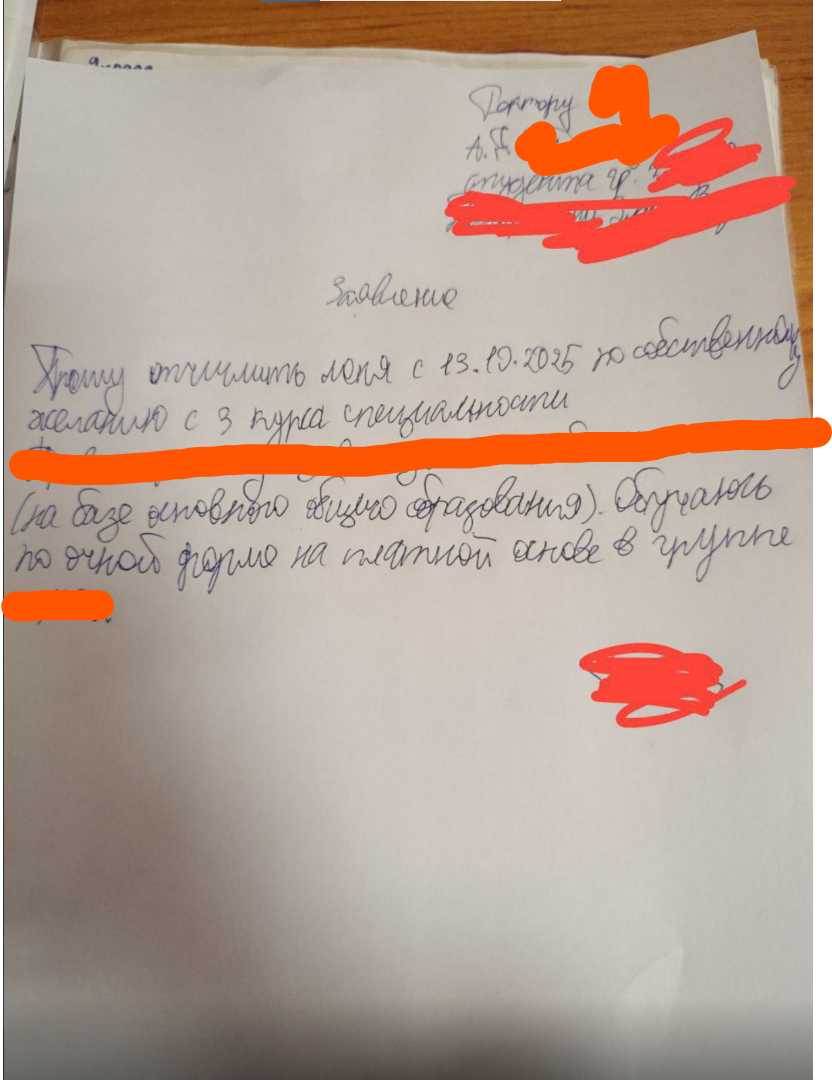 Ректору
А.Д
студента гр.
Заявление
Прошу отчислить меня с 13.10.2025 по собственному
желанию с 3 курса специальности
(на базе основного общего образования). Обучаюсь
по очной форме на платной основе в группе